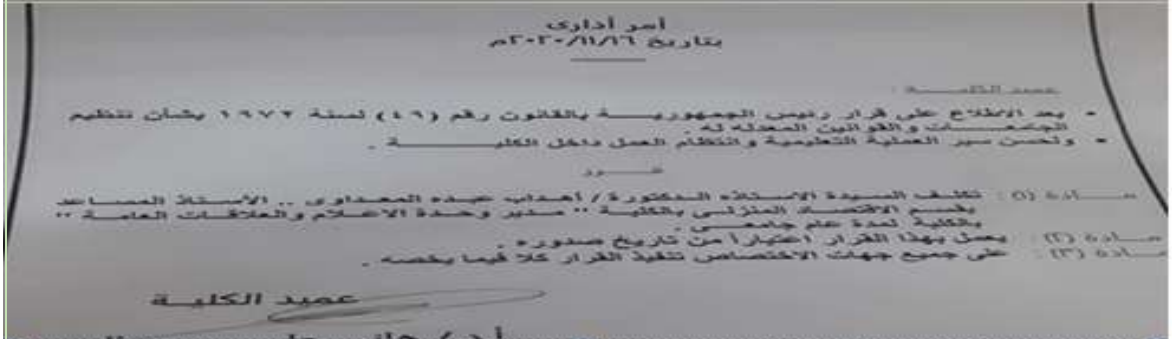 أمر أدارى
بتاريخ ٢٠٢٠/١١/١٦م
عميد الكليـــــة :
• بعد الإطلاع على قرار رئيس الجمهوريـــــة بالقانون رقم (٤٩) لسنة ١٩٧٢ بشأن تنظيم
الجامعـــــات والقوانين المعدله له .
• ولحسن سير العملية التعليمية وانتظام العمل داخل الكليـــــــة .
قـــــرر
مـــــادة (١) : تكلف السيدة الاستاذه الدكتورة / أهداب عبده المعداوى .. الأستاذ المساعد
بقسم الاقتصاد المنزلـى بالكلية " مدير وحدة الاعلام والعلاقات العامـة "
بالكلية لمدة عام جامعـــى .
مـــــادة (٢) : يعمل بهذا القرار اعتباراً من تاريخ صدوره .
مـــــادة (٣) : على جميع جهات الاختصاص تنفيذ القرار كلا فيما يخصه .
عميد الكليـة
أ.د/